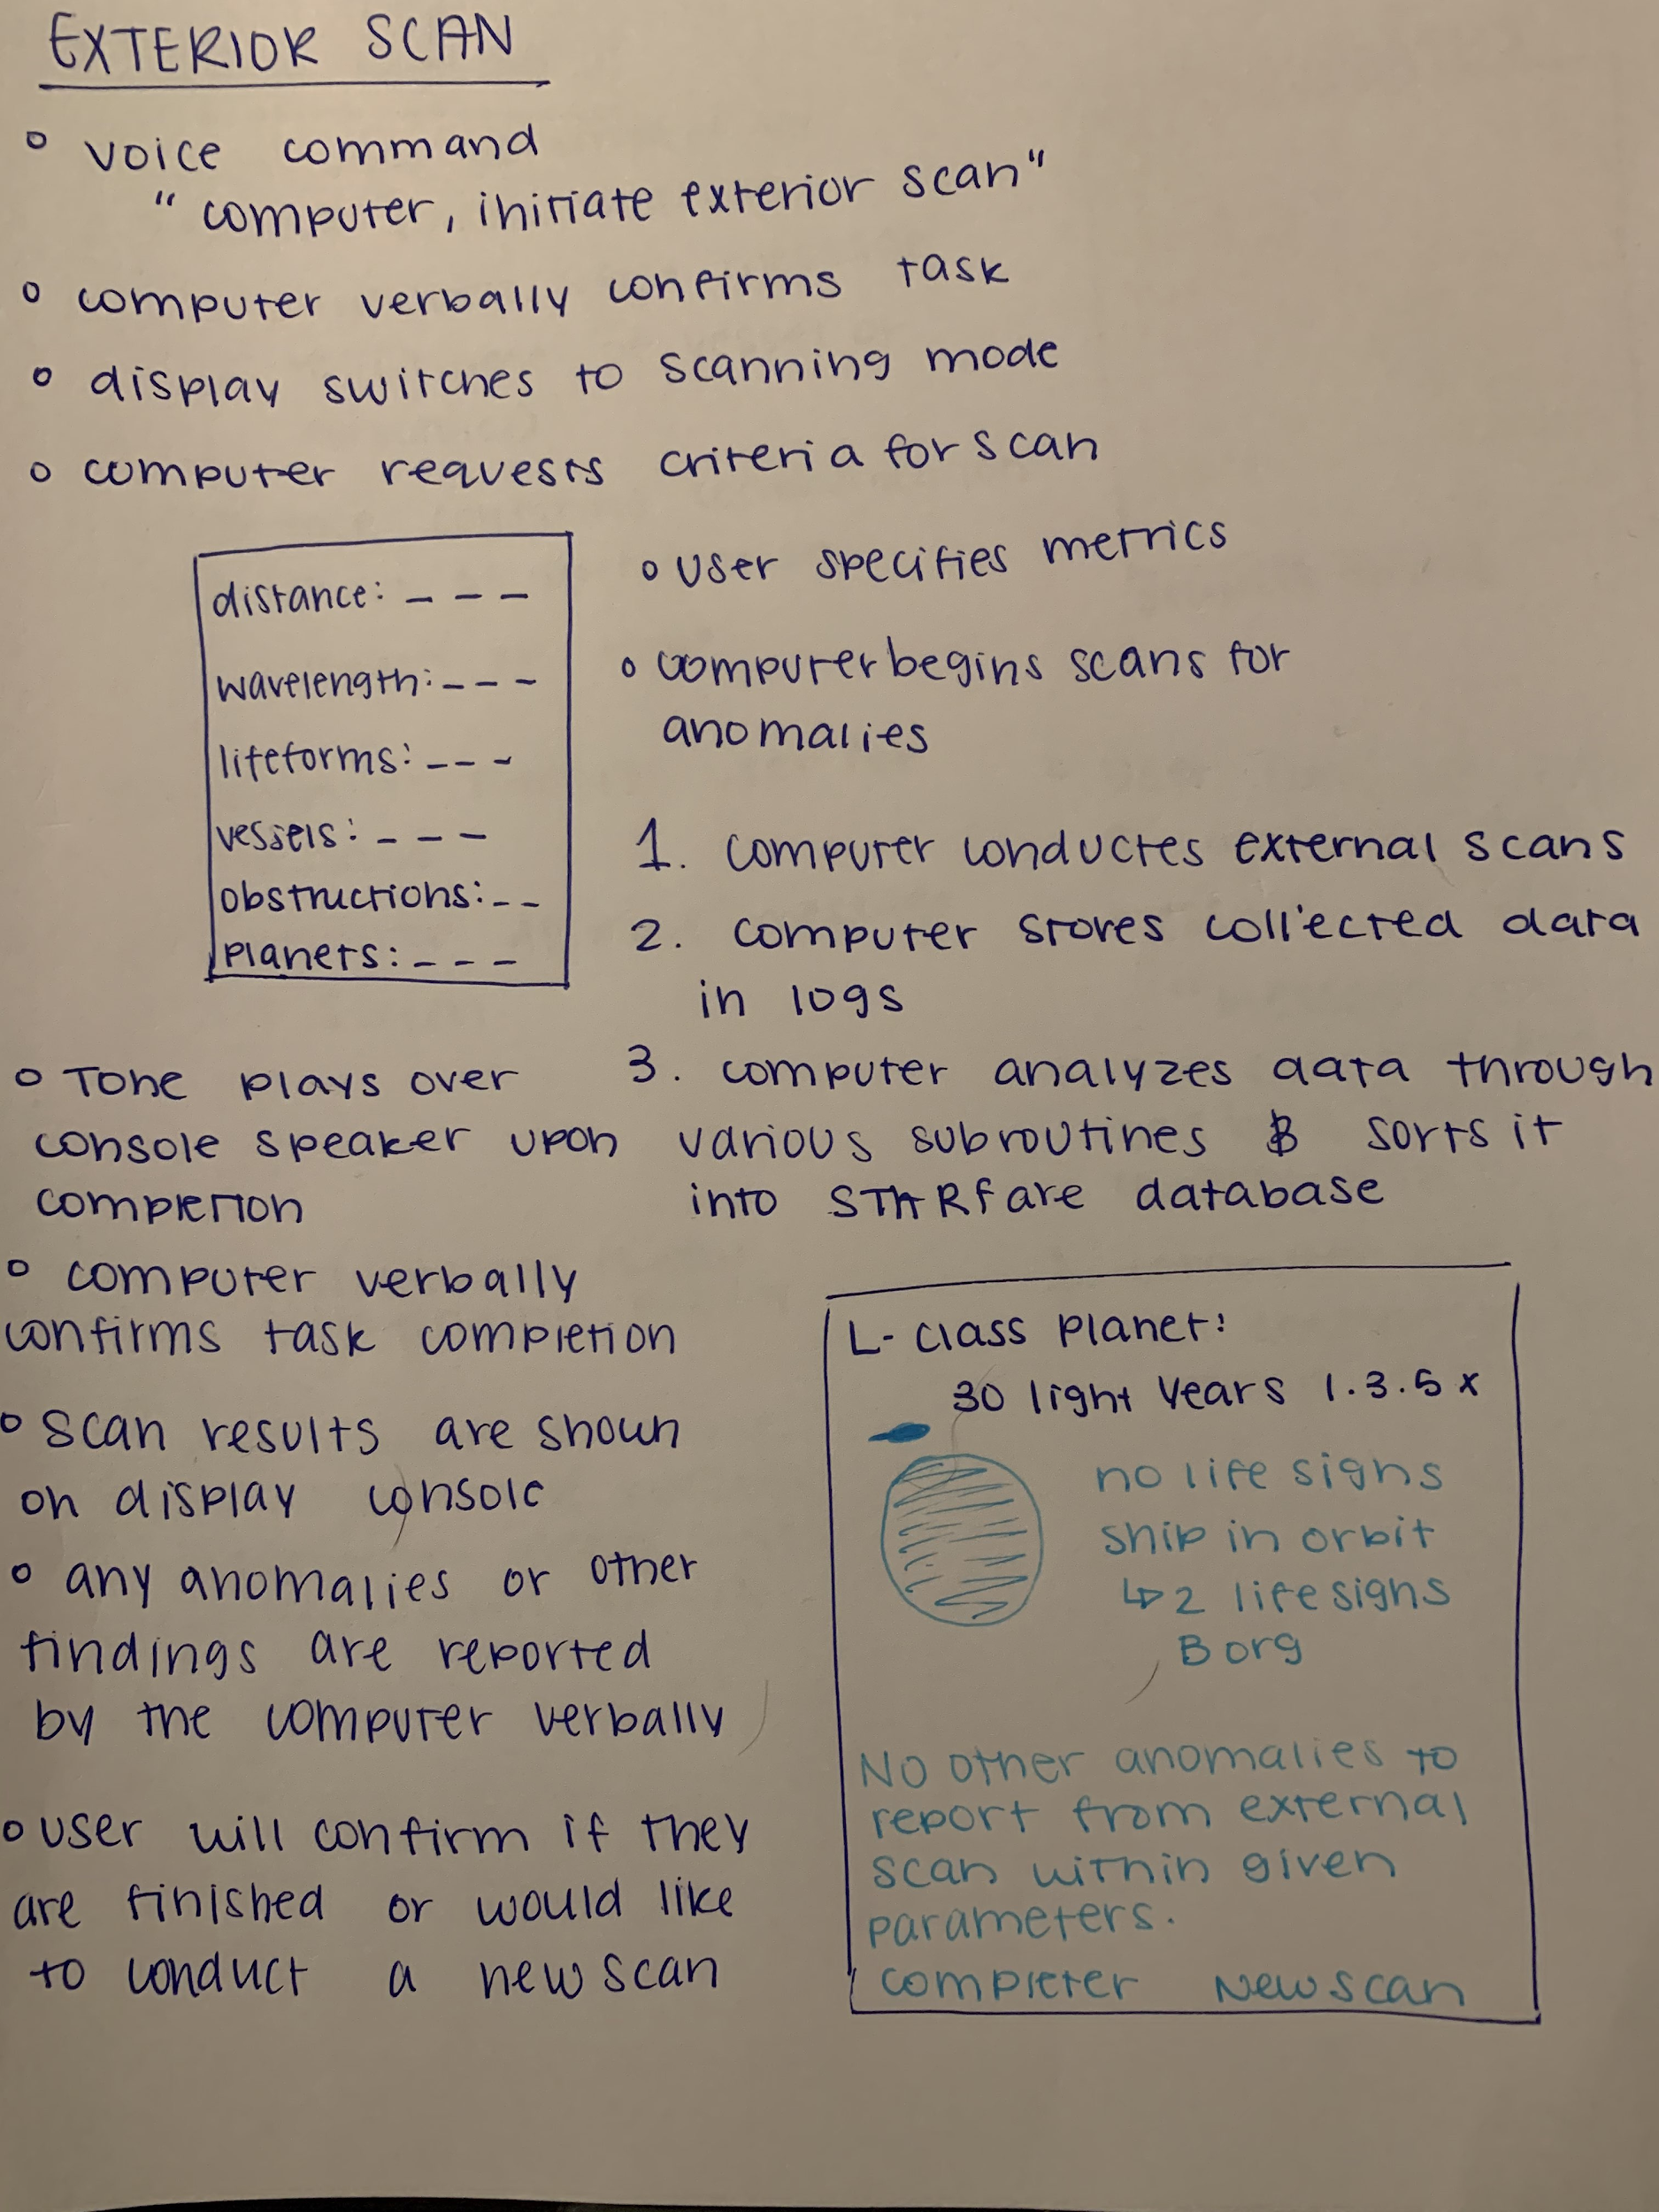 EXTERIOR SCAN
voice command
"computer, initiate exterior scan"
computer verbally confirms task
display switches to scanning mode
computer requests criteria for scan
distance: _ _ _
wavelength: _ _ _
lifeforms: _ _ _
vessels: _ _ _
obstructions: _ _
planets: _ _ _
user specifies metrics
computer begins scans for
anomalies
1. computer conductes external scans
2. computer stores collected data
in logs
3. computer analyzes data through
various subroutines & sorts it
into STARfare database
Tone plays over
console speaker upon
completion
computer verbally
confirms task completion
scan results are shown
on display console
any anomalies or other
findings are reported
by the computer verbally
user will confirm if they
are finished or would like
to conduct a new scan
L-class planet:
30 light years 1.3.5 x
no life signs
ship in orbit
↳ 2 lifesigns
Borg
No other anomalies to
report from external
scan within given
parameters.
completer New scan